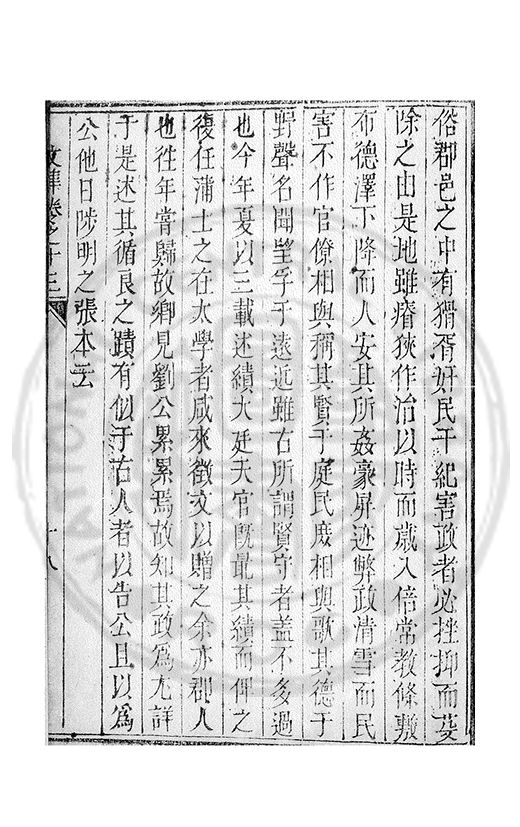 俗郡邑之中有猾胥奸民干紀害政者必挫抑而芟
除之由是地雖瘠狹作治以時而歲入倍常教條敷
布德澤下降而人安其所姦豪屏迹弊政清雪而民
害不作官僚相與稱其賢于庭民庶相與歌其德于
野聲名聞望孚于遠近雖古所謂賢守者盖不多過
也今年夏以三載述績大廷天官旣最其績而俾之
復任蒲士之在太學者咸來徵文以贈之余亦郡人
也徃年嘗歸故鄉見劉公累累焉故知其政爲尤詳
于是述其循良之蹟有似于古人者以告公且以爲
公他日陟明之張本云
文集卷之十三
十八